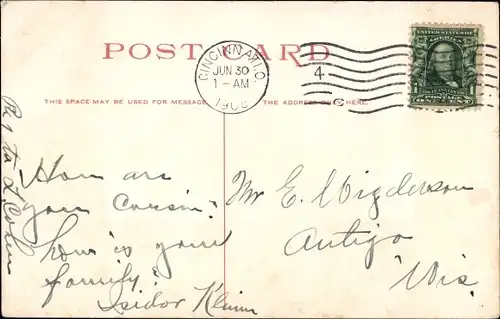 POST CARD
CINCINNATI, O.
JUN 30
1-AM
4
UNITED STATES OF
AMERICA
1 1
POSTAGE
ONE CENT
THIS SPACE MAY BE USED FOR MESSAGE.
THE ADDRESS ONLY HERE.
How are
you Cousin?
how is your
family?
Isidor
Mr E. Wigderson
Antigo
Wis.
to L Cohen